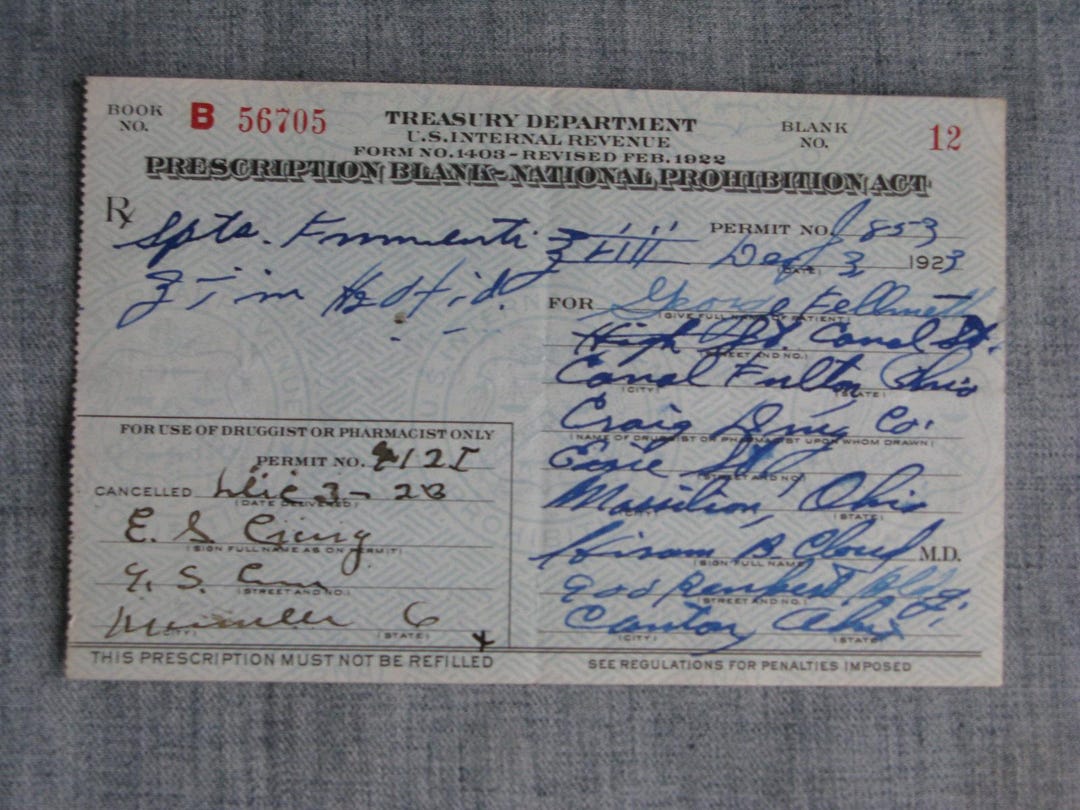 BOOK NO. B 56705
TREASURY DEPARTMENT
U.S. INTERNAL REVENUE
FORM NO. 1403 - REVISED FEB. 1922
BLANK NO. 12
PRESCRIPTION BLANK - NATIONAL PROHIBITION ACT
Rx
Spts. Frumenti ℥ viii
PERMIT NO. 853
Dec 3, 1923
(DATE)
FOR George Fellmeth
(GIVE FULL NAME OF PATIENT)
High St. Canal St.
(STREET AND NO.)
Canal Fulton Ohio
(CITY) (STATE)
Craig Drug Co.
(NAME OF DRUGGIST OR PHARMACIST UPON WHOM DRAWN)
Erie St
(STREET AND NO.)
Massilion, Ohio
(CITY) (STATE)
Hiram B. Cloud M.D.
(SIGN FULL NAME)
Bldg.
(STREET AND NO.)
Canton, Ohio
(CITY) (STATE)
FOR USE OF DRUGGIST OR PHARMACIST ONLY
PERMIT NO.
CANCELLED Dec 3 - 23
(DATE DELIVERED)
E. S. Craig
(SIGN FULL NAME AS ON PERMIT)
(STREET AND NO.)
(CITY) (STATE)
THIS PRESCRIPTION MUST NOT BE REFILLED
SEE REGULATIONS FOR PENALTIES IMPOSED